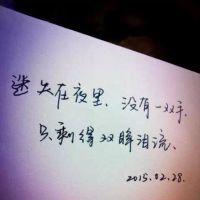 迷失在夜里、没有一双手、
只剩得双眸泪流、
2015.02.28.